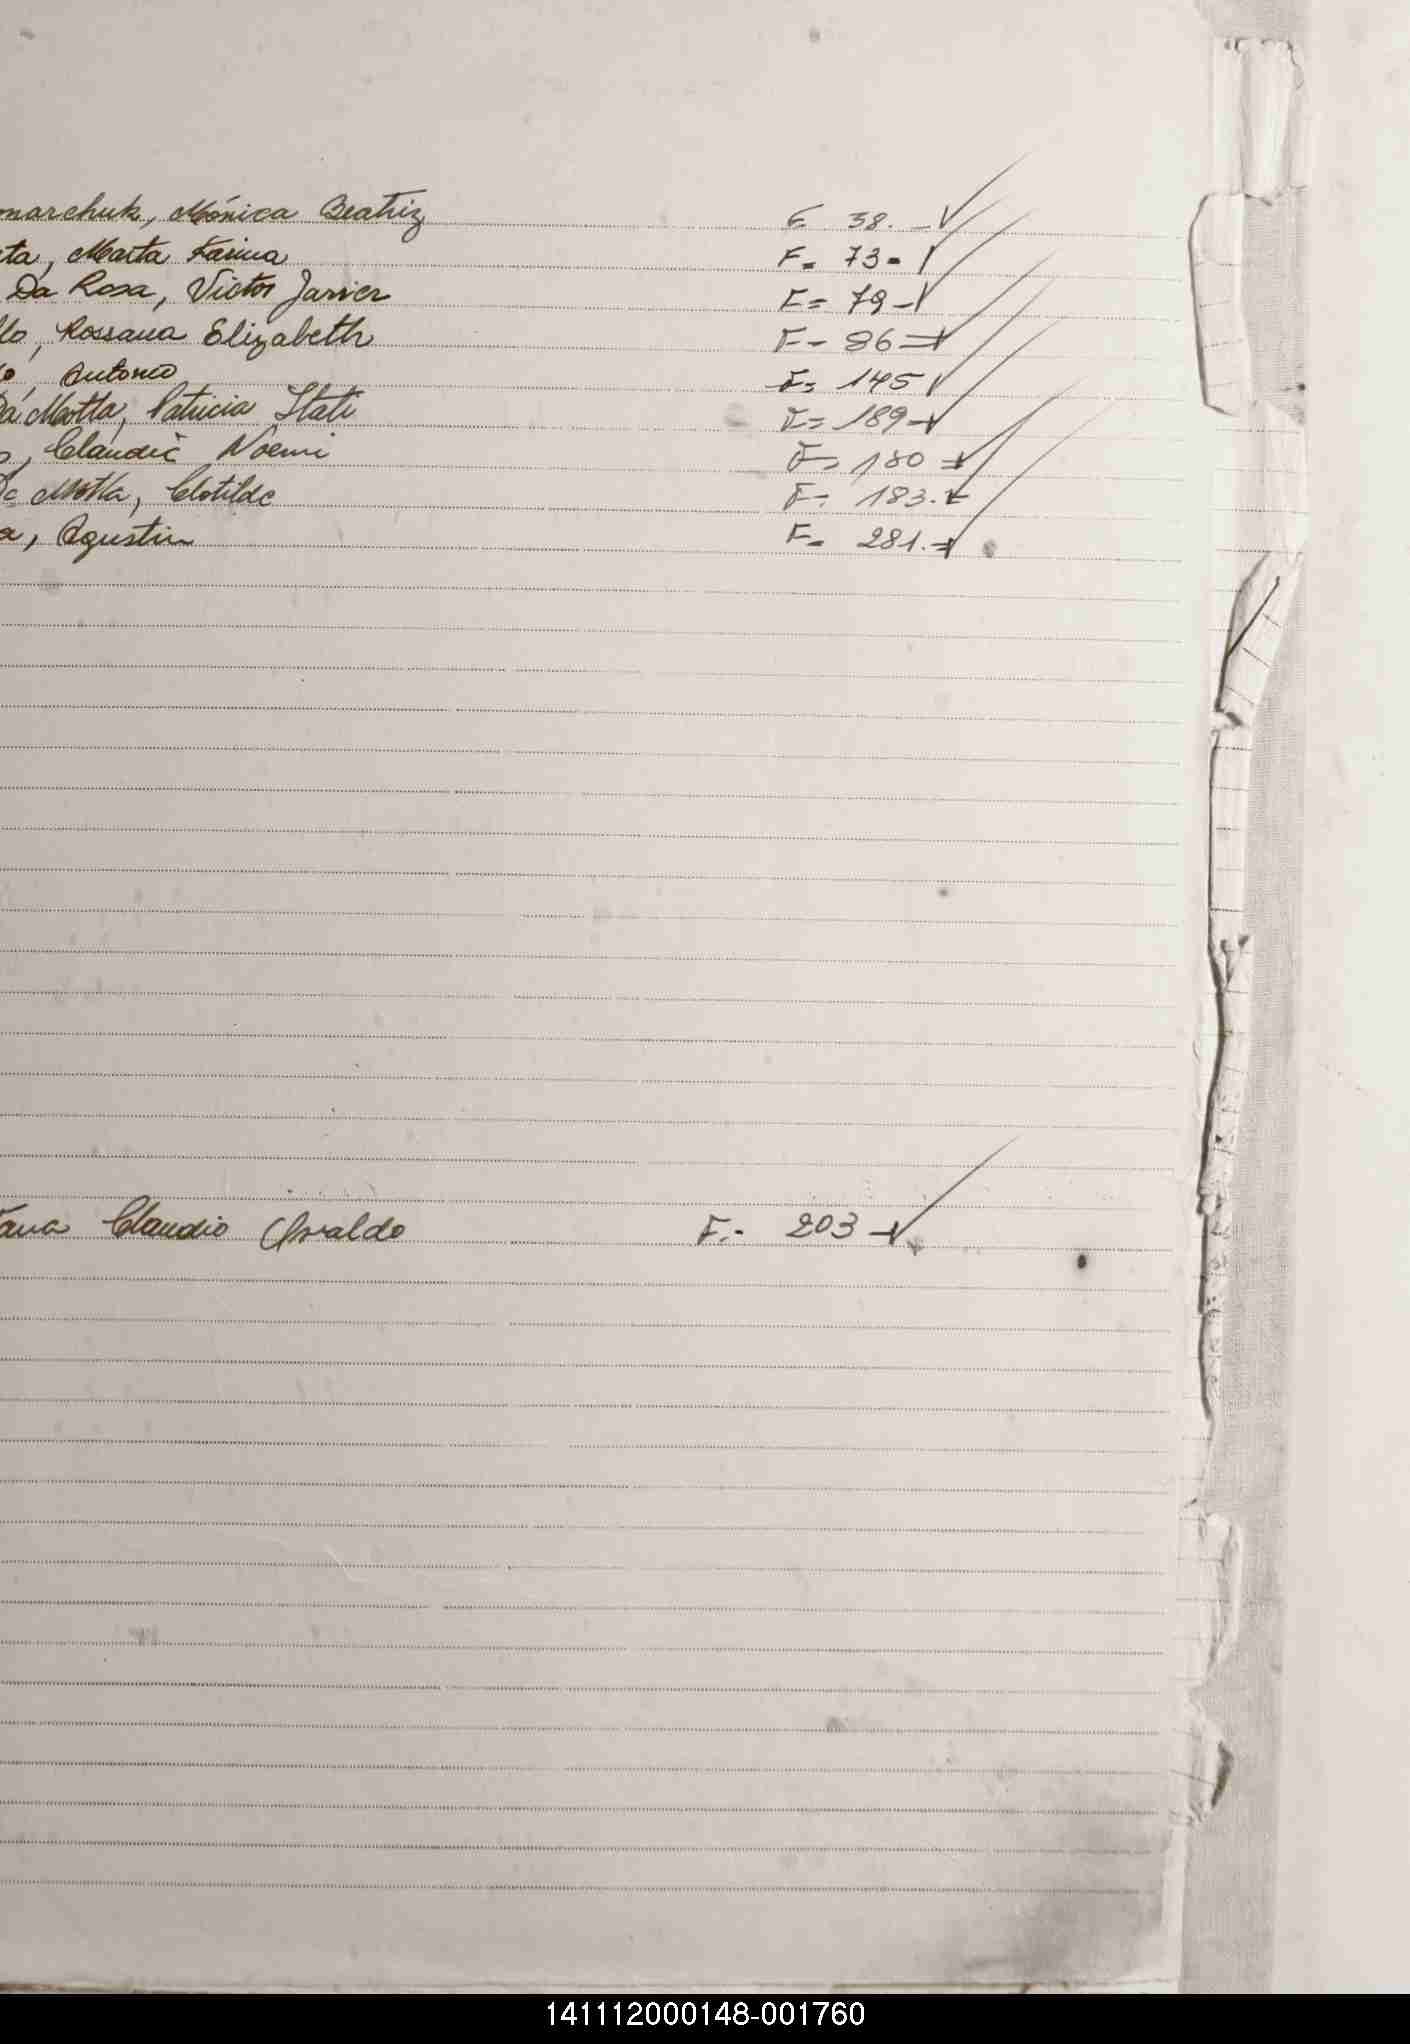 marchuk, Mónica Beatriz F 38.-
ta, Marta Karina F.- 73-
Da Rosa, Victor Javier F.= 79-
llo, Rossana Elizabeth F- 86=
o, Antonio F= 145
Da Motta, Patricia Itati F= 189-
o, Claudic Noemi F= 180
De Motta, Clotilde F- 183.-
a, Agustin F- 281.-
ana Claudio Osvaldo F.- 203
141112000148-001760